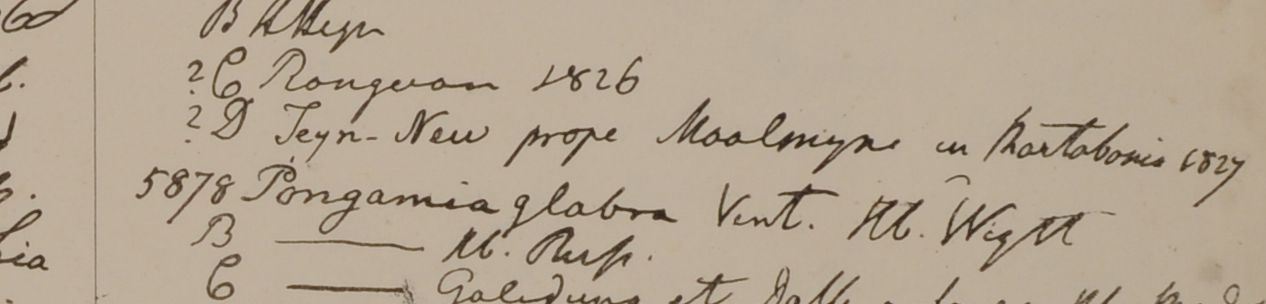 B H Heyn
? C Rongoon 1826
? D Teyn-New prope Moolmyne in Martabania 1827
5878 Pongamia glabra Vent. Hb. Wight
B — Hb. Russ.
C — et